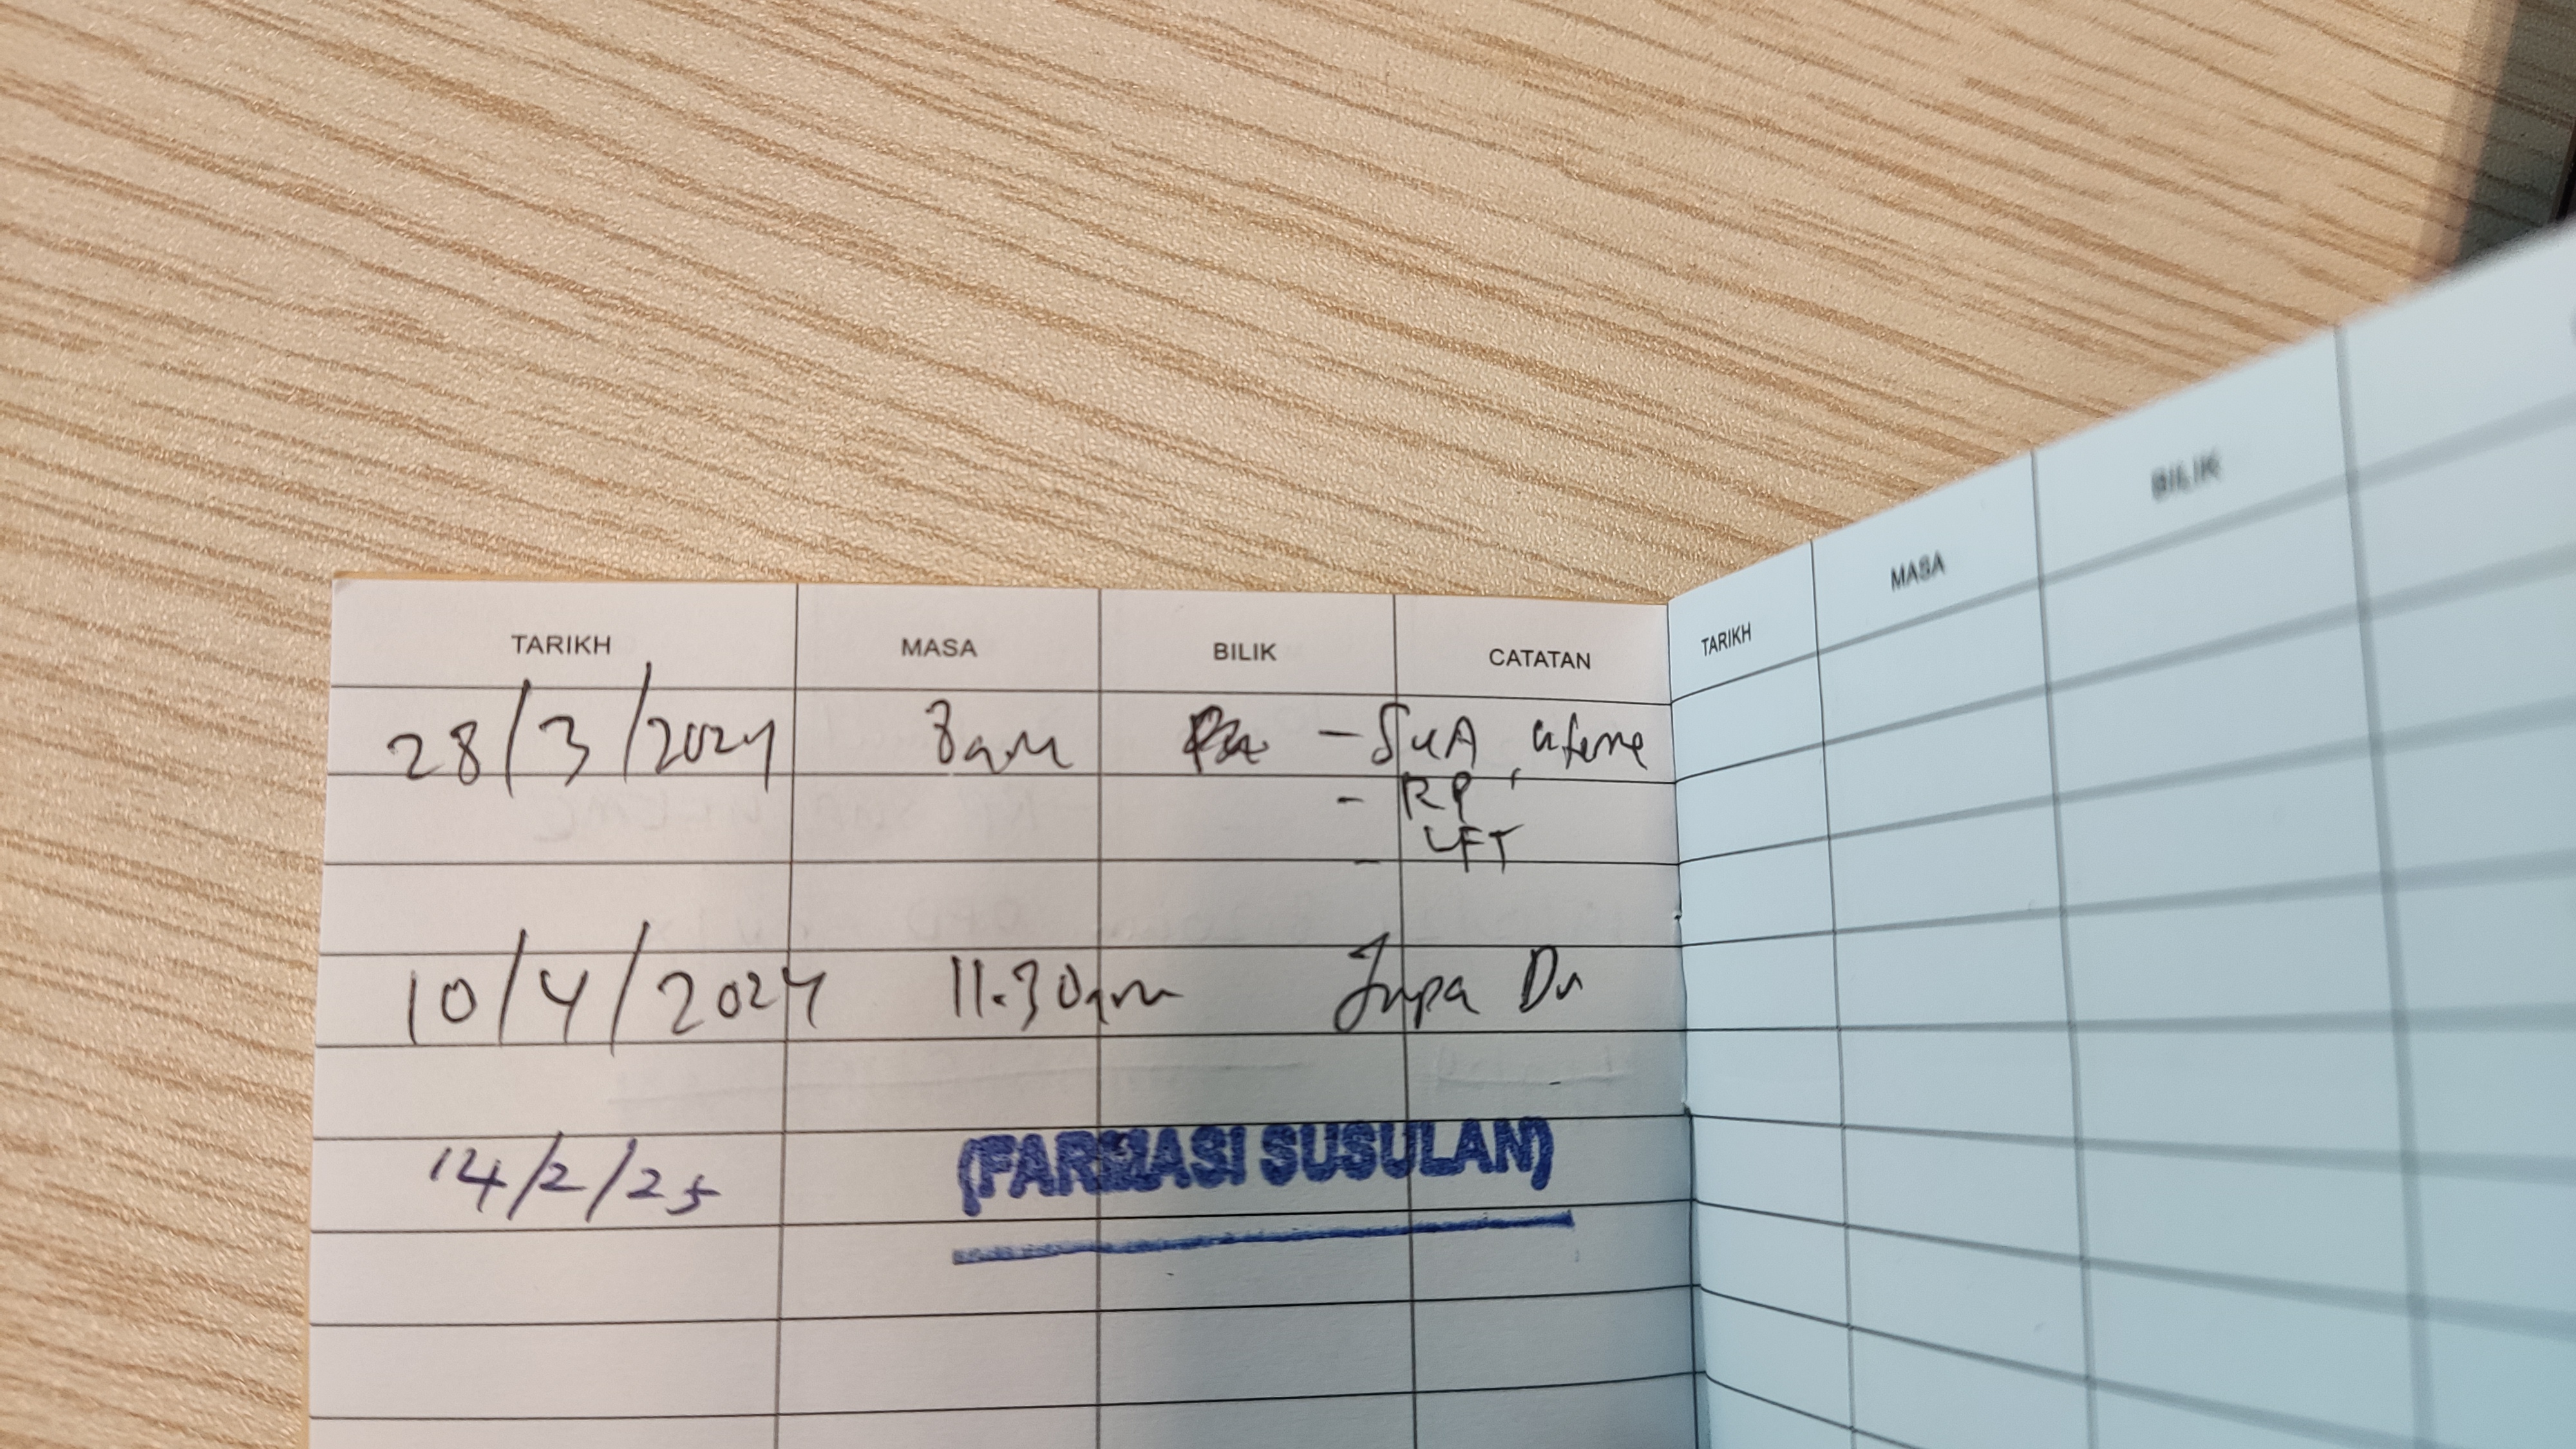 TARIKH MASA BILIK CATATAN
28/3/2024 8am - SUA, ufeme
- RP
- LFT
10/4/2024 11.30am Jumpa Dr
14/2/25 (FARMASI SUSULAN)
TARIKH MASA BILIK